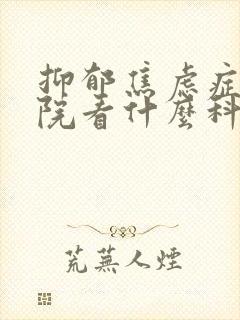 抑郁焦虑症
院看什麼科
荒蕪人煙